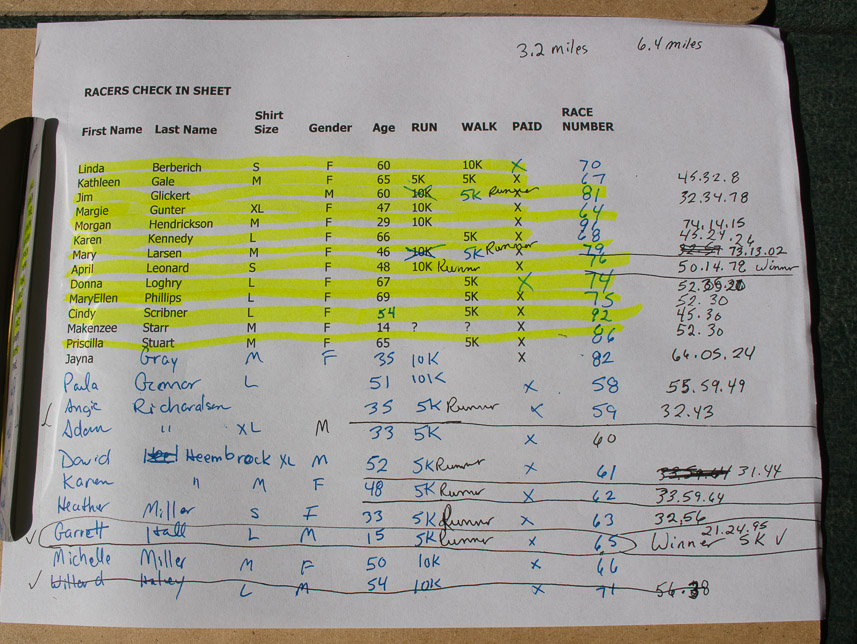 3.2 miles 6.4 miles
RACERS CHECK IN SHEET
First Name Last Name Shirt Size Gender Age RUN WALK PAID RACE NUMBER
Linda Berberich S F 60 10K X 70
Kathleen Gale M F 65 5K 5K X 67 45.32.8
Jim Glickert M 60 10K 5K Runner X 81 32.34.78
Margie Gunter XL F 47 10K X 64
Morgan Hendrickson M F 29 10K X 74.14.15
Karen Kennedy L F 66 5K X 68 45.24.26
Mary Larsen M F 46 10K 5K Runner X 79 73.13.02
April Leonard S F 48 10K Runner X 76 50.14.78 Winner
Donna Loghry L F 67 5K X 74
MaryEllen Phillips L F 69 5K X 75 52.30
Cindy Scribner L F 54 5K X 92 45.30
Makenzee Starr M F 14 ? ? X 86 52.30
Priscilla Stuart M F 65 5K X
Jayna Gray M F 35 10K X 82 64.05.24
Paula Connor L 51 10K X 58 55.59.49
Angie Richardson 35 5K Runner X 59 32.43
Adam " XL M 33 5K X 60
David Heembrock XL M 52 5K Runner X 61 31.44
Karen " M F 48 5K Runner X 62 33.59.64
Heather Miller S F 33 5K Runner X 63 32.56
✓ Garrett Hall L M 15 5K Runner X 65 Winner 21.24.95 5K ✓
Michelle Miller M F 50 10K X 66
✓ Willard Halvey L M 54 10K X 71